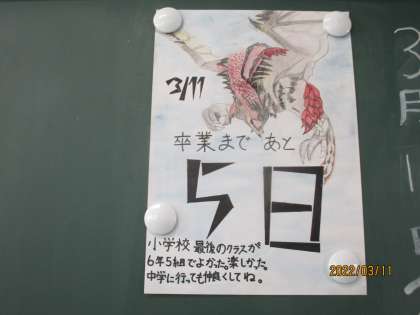 3/11
卒業まであと
5日
小学校最後のクラスが
6年5組でよかった。楽しかった。
中学に行っても仲良くしてね。
3月1
2022/03/11